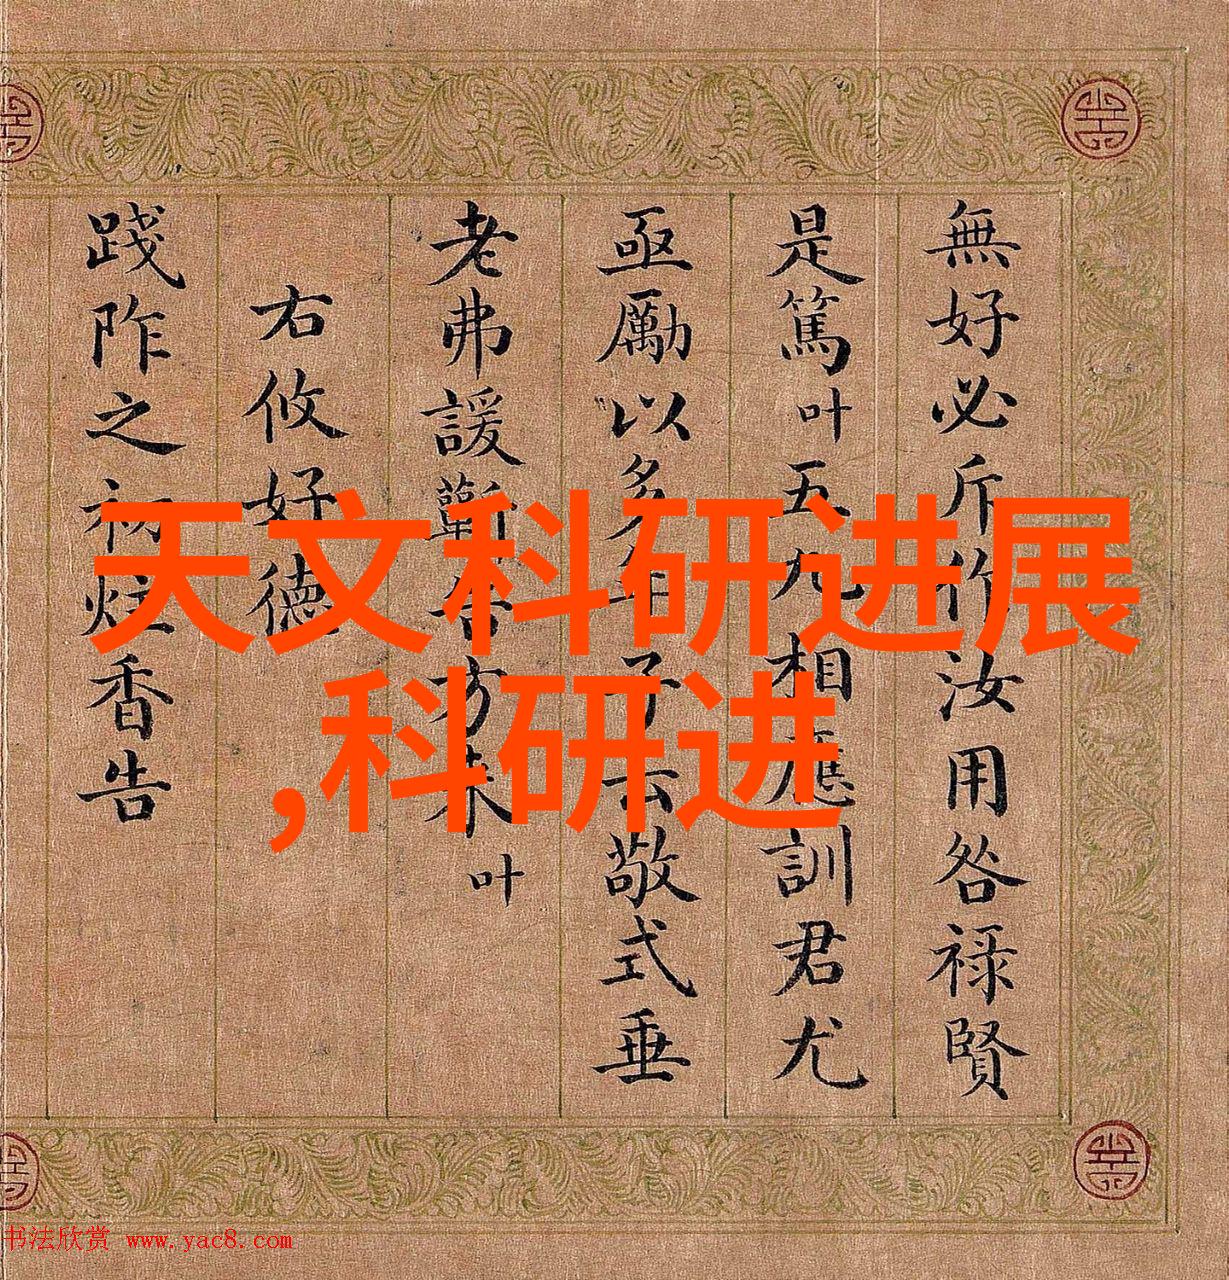 無好必斥作汝用咎禄賢
是篤叶五九相應訓君尤
亟勵以多年予云敬式垂
老弗諼蘄告方来叶
右攸好德
踐阼之初炷香告
天文科研进展
,科研进
书法欣赏 www.yac8.com